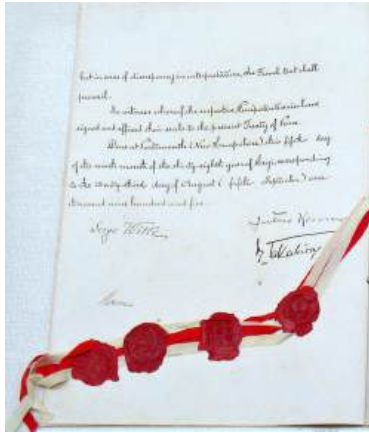 but in case of discrepancy in interpretation, the French text shall
prevail.
In witness whereof the respective Plenipotentiaries have
signed and affixed their seals to the present Treaty of Peace.
Done at Portsmouth (New Hampshire) this fifth day
of the ninth month of the thirty eighth year of Meiji corresponding
to the twenty-third day of August (fifth September) one
thousand nine hundred and five.
Serge Witte
Jutaro Komura
Takahira